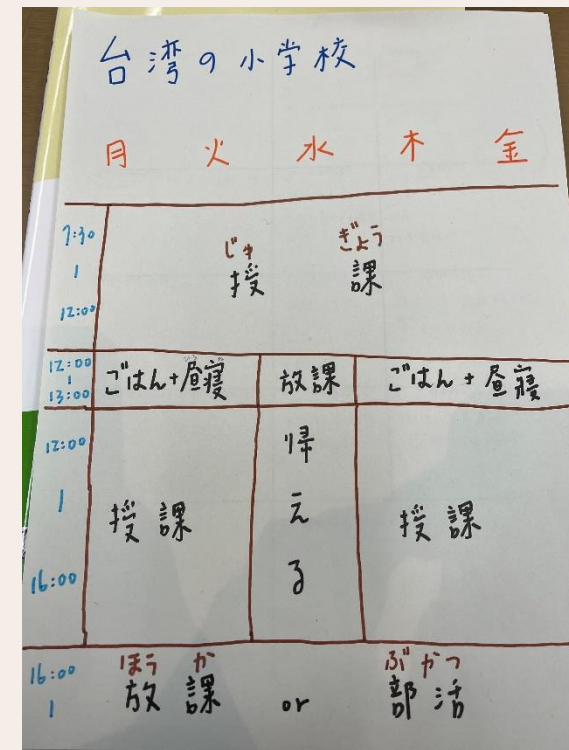 台湾の小学校
月 火 水 木 金
7:30
|
12:00
じゅ ぎょう
授 課
12:00
|
13:00
ごはん+昼寝 放課 ごはん+昼寝
12:00
|
16:00
授課
帰
え
る
授課
16:00
|
ほう か ぶ かつ
放 課 or 部 活